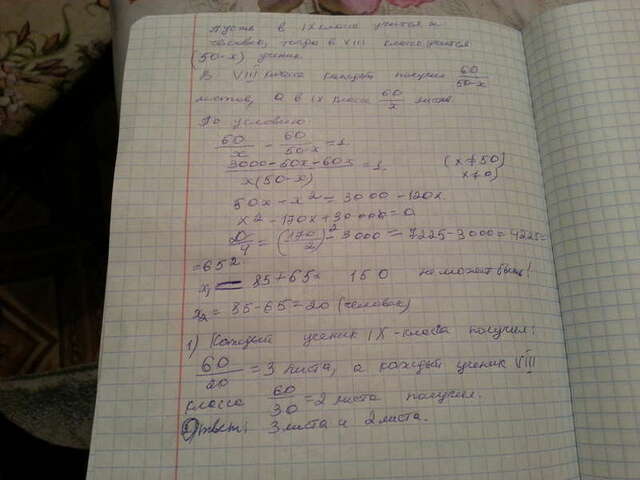 Пусть в IX классе учится x
человек, тогда в VIII классе учится
(50-x) учеников.
В VIII классе каждый получил 60/(50-x)
листов, а в IX классе 60/x листов.
По условию
60/x - 60/(50-x) = 1.
(3000-60x-60x)/(x(50-x)) = 1. (x≠50; x≠0)
50x - x² = 3000 - 120x.
x² - 170x + 3000 = 0
D/4 = (170/2)² - 3000 = 7225 - 3000 = 4225 =
= 65²
x₁ = 85+65 = 150 не может быть!
x₂ = 85-65 = 20 (человек)
1) Каждый ученик IX-класса получил:
60/20 = 3 листа, а каждый ученик VIII
класса 60/30 = 2 листа получил.
Ответ: 3 листа и 2 листа.